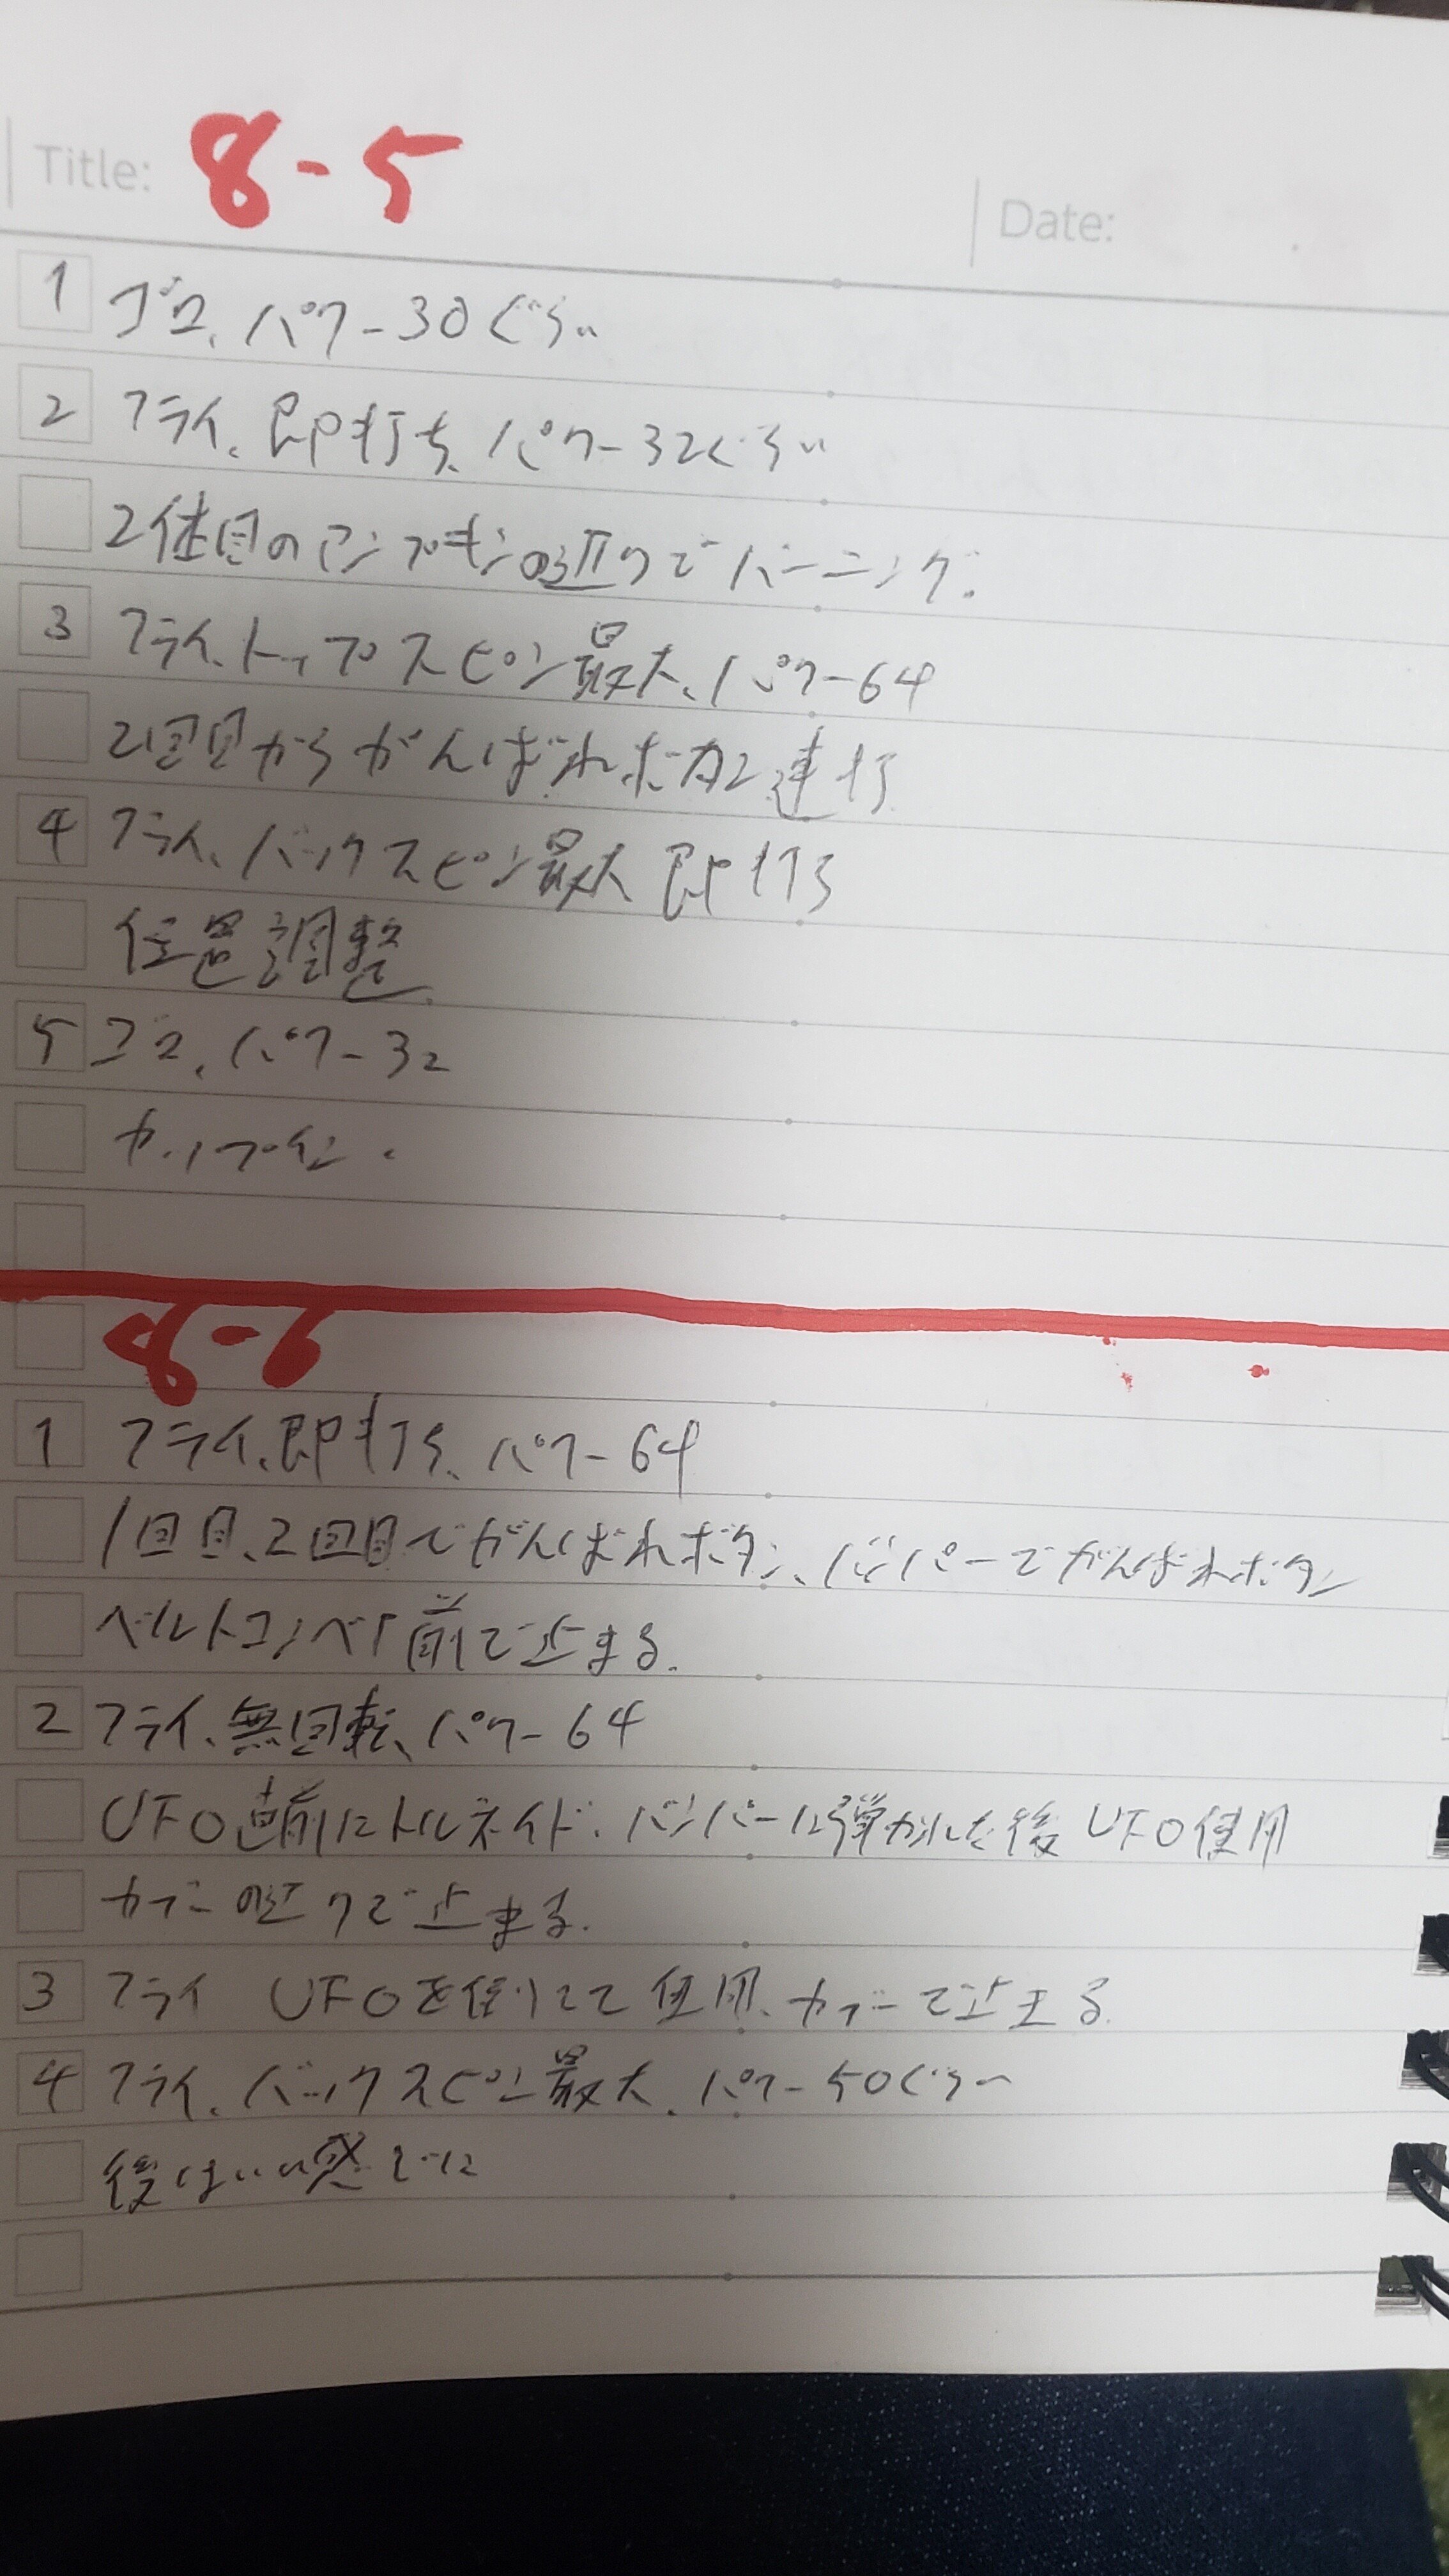 Title: 8-5
Date:
1 ゴロ、パワー30ぐらい
2 フライ、即打ち、パワー32ぐらい
2体目のアンプキン の近くでバーニング.
3 フライ、トップスピン最大、パワー64
2回目からがんばれボタン連打
4 フライ、バックスピン最大 即打ち
位置調整.
5 ゴロ、パワー32
カップイン.
8-6
1 フライ、即打ち、パワー64
1回目、2回目でがんばれボタン、バンパーでがんばれボタン
ベルトコンベア前で止まる.
2 フライ、無回転、パワー64
UFO直前にトルネイド. バンパーに弾かれた後UFO使用
カブーの近くで止まる.
3 フライ UFOを使用、カブーで止まる.
4 フライ、バックスピン最大、パワー50ぐらい
後はいい感じに